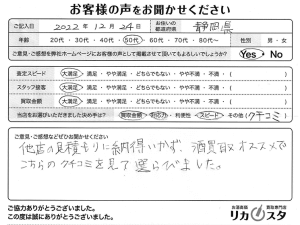 お客様の声をお聞かせください
ご記入日 2022年12月24日 お住いの都道府県 静岡県
年齢 20代・30代・40代・50代・60代・70代・80代〜 性別 男・女
ご意見・ご感想を弊社ホームページにお客様の声として掲載させて頂いてもよろしいでしょうか？ Yes・No
査定スピード 大満足・満足・やや満足・どちらでもない・やや不満・不満
スタッフ接客 大満足・満足・やや満足・どちらでもない・やや不満・不満
買取金額 大満足・満足・やや満足・どちらでもない・やや不満・不満
当店をお選びいただきました決め手は？ 買取金額・対応力・利便性・スピード・その他(クチコミ)
ご意見・ご感想などぜひお聞かせください
他店の見積もりに納得いかず、酒買取オススメで
こちらのクチコミを見て選らびました。
ご協力ありがとうございました。
この度は誠にありがとうございました。
お酒買取 買取専門店
リカスタ